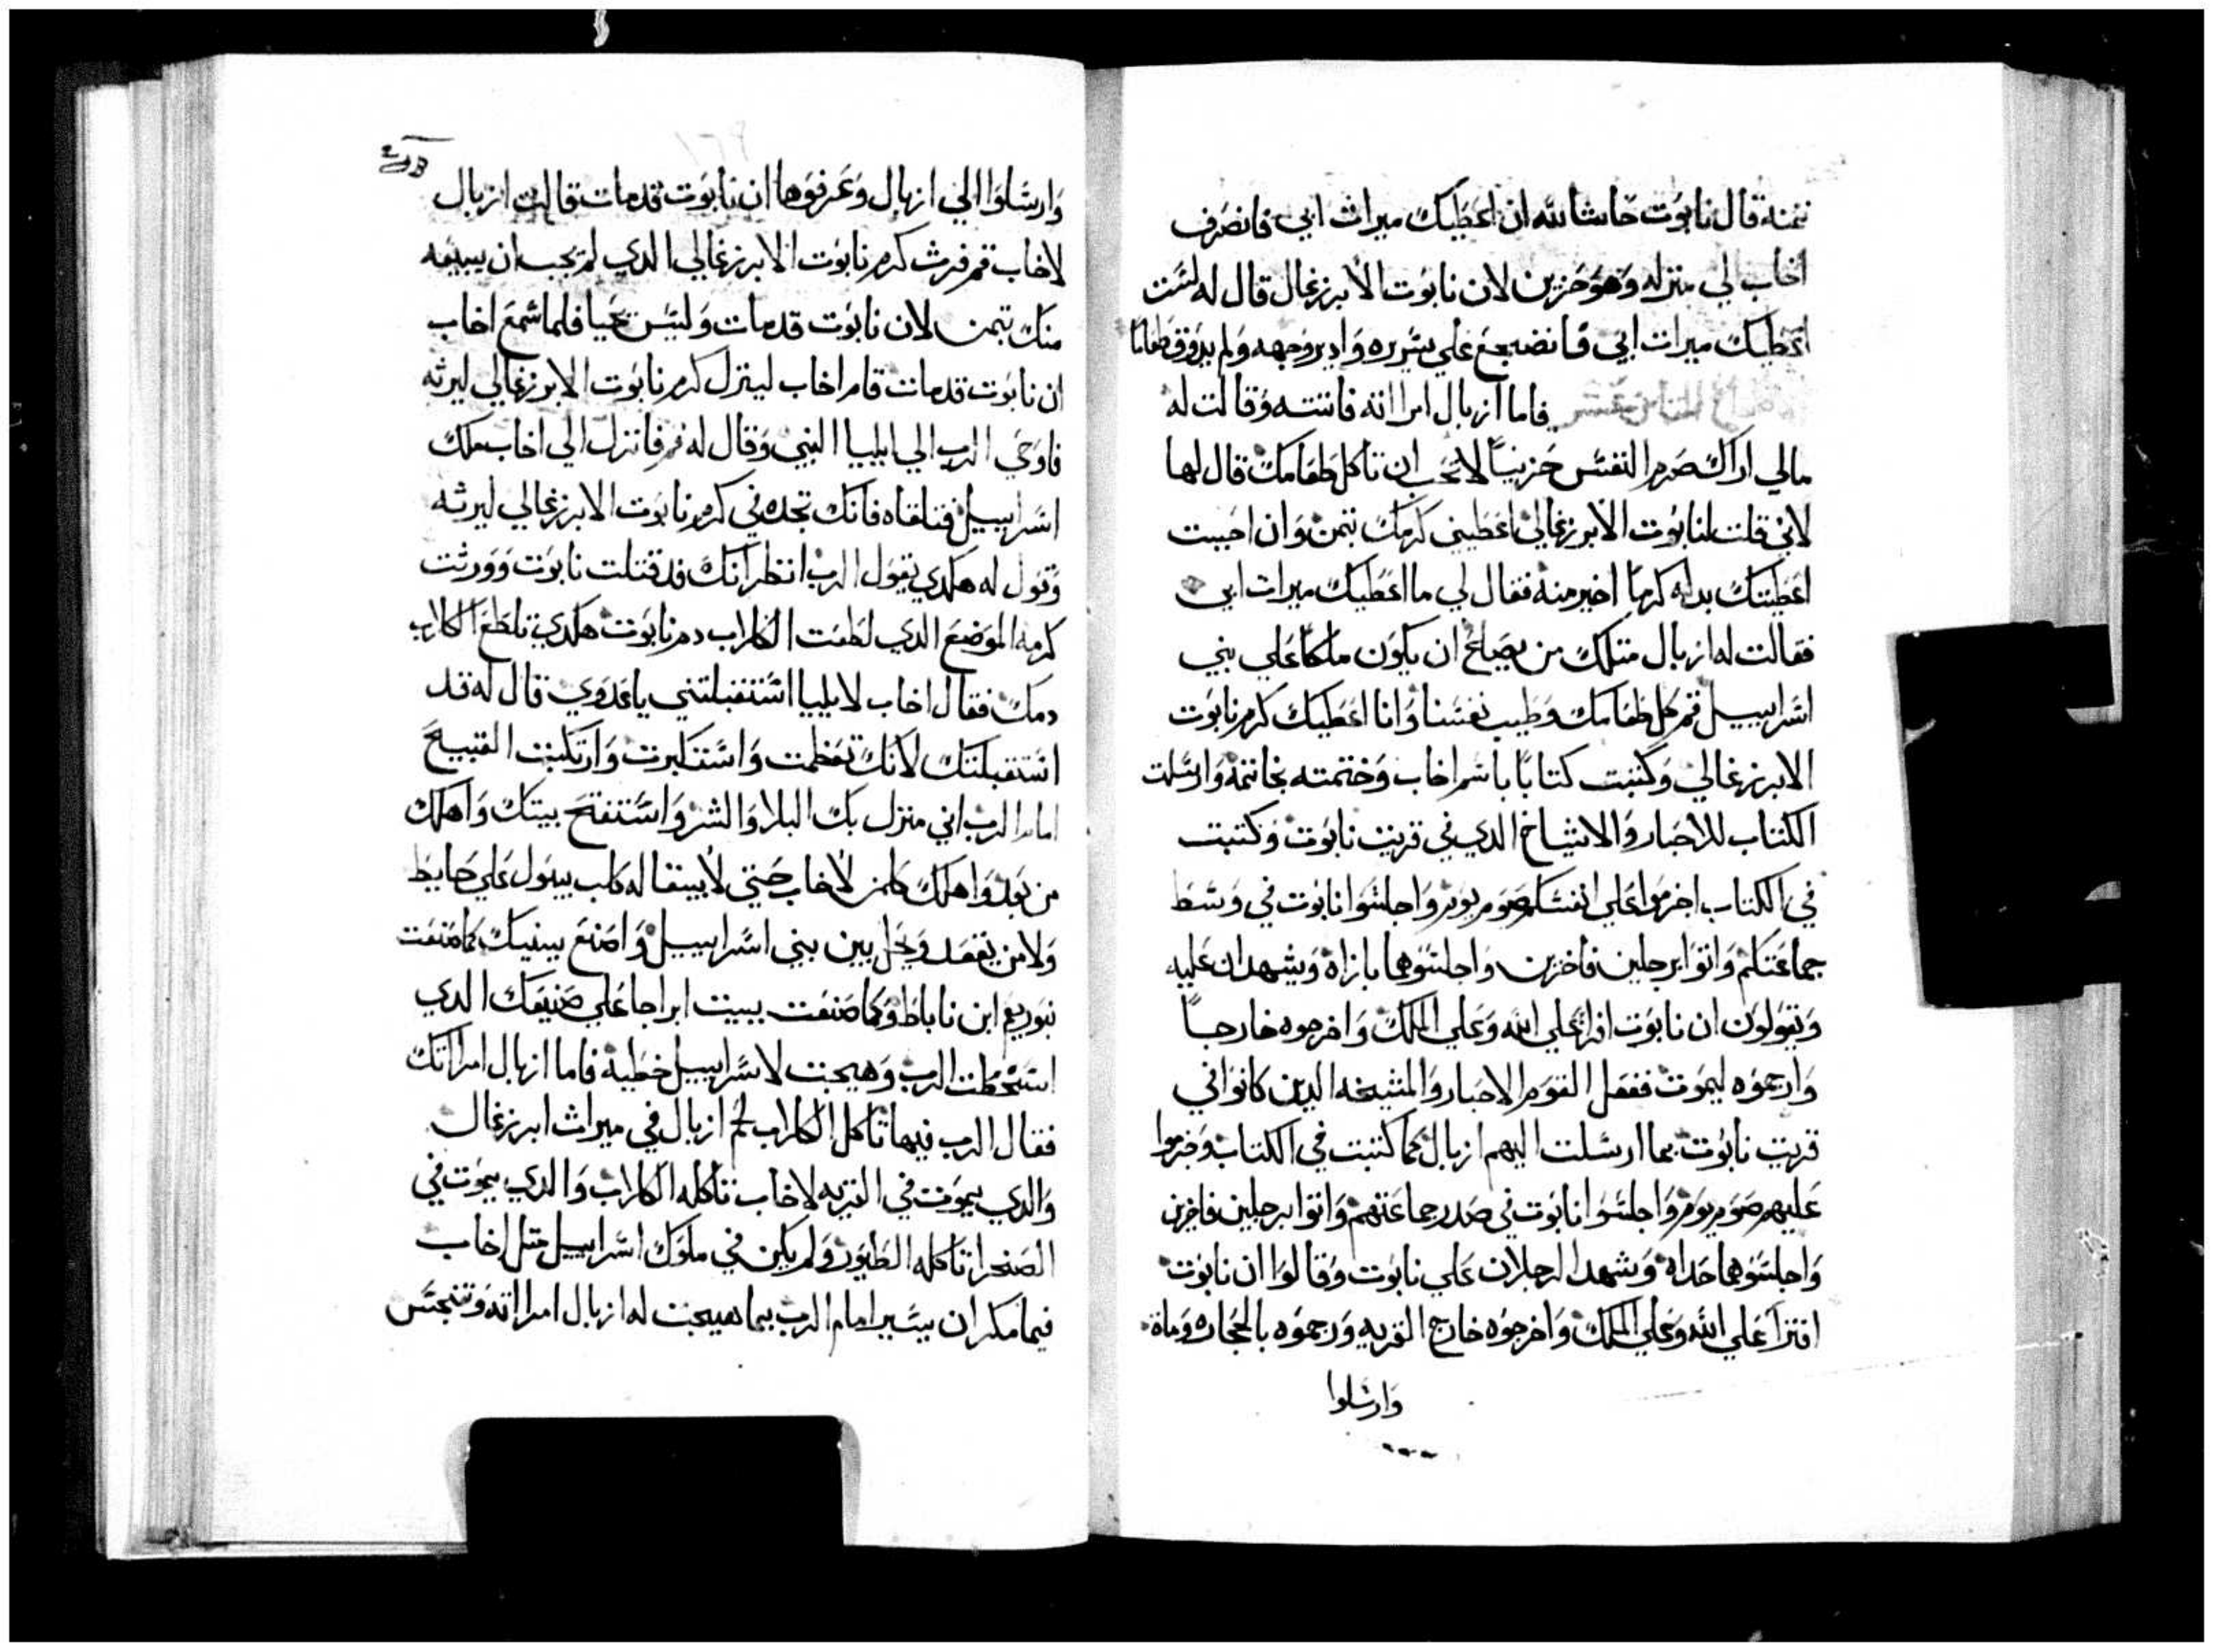 نتمنه قال نابوت حاشا لله ان اعطيك ميراث ابي فانصرف
اخاب الي منزله وهو حزين لان نابوت الابرزغال قال له لست
اعطيك ميرات ابي فانضجع علي سريره وادير وجهه ولم يدوق طعاما
فاما ازبال امراته فاتته وقالت له
مالي اراك صرم النفس حزينا لا تحب ان تاكل طعامك قال لها
لاني قلت لنابوت الابرزغالي اعطيني كرمك بتمن وان احببت
اعطيتك بدله كرما اخير منه فقال لي ما اعطيك ميرات ابي
فقالت له ازبال متلك من يصلح ان يكون ملكا علي بني
اسراييل قم كل طعامك وطيب نفسنا وانا اعطيك كرم نابوت
الابرزغالي وكتبت كتابا باسم اخاب وختمته بخاتمه وارسلت
الكتاب للاحبار والاشياخ الدي في قريت نابوت وكتبت
في الكتاب اخرموا علي انفسكم صوم يوم واجلسوا نابوت في وسط
جماعتكم واتوا برجلين فاخزين واجلسوهما بازاه ويشهدان عليه
ويقولون ان نابوت افترا علي الله وعلي الملك واخرجوه خارجا
وارجموه ليموت ففعل القوم الاحبار والمشيخه الدين كانوا في
قريت نابوت بما ارسلت اليهم ازبال كما كتبت في الكتاب وخرموا
عليهم صوم يوم واجلسوا نابوت في صدر جماعتهم واتوا برجلين فاخزين
واجلسوهما حداه وشهد الرجلان علي نابوت وقالوا ان نابوت
افترا علي الله وعلي الملك واخرجوه خارج القريه ورجموه بالحجاره وماة
وارسلوا
وارسلوا الي ازبال وعرفوها ان نابوت قد مات قالت ازبال
لاخاب قم فرث كرم نابوت الابرزغالي الدي لم يحب ان يبيعه
منك بتمن لان نابوت قد مات وليس يحيا فلما سمع اخاب
ان نابوت قد مات قام اخاب لينزل كرم نابوت الابرزغالي ليرثه
فاوحي الرب الي ايليا النبي وقال له قم فانزل الي اخاب ملك
اسراييل فتلقاه فانك تجده في كرم نابوت الابرزغالي ليرثه
وتقول له هكدي يقول الرب انظر انك قد قتلت نابوت وورثت
كرمه الموضع الدي لطعت الكلاب دم نابوت هكدي تلطع الكلاب
دمك فقال اخاب لايليا استقبلتني يا عدوي قال له قد
استقبلتك لانك تعظمت واستكبرت وارتكبت القبيح
امام الرب اني منزل بك البلا والشر واستفتح بيتك واهلك
من بعد واهلك كلمن لاخاب حتي لا يبقا له كلب يبول علي حايط
ولا من يقعد ويحل بين بني اسراييل واصنع ببيتك كما صنعت
نبوربعم ابن ناباط وكما صنعت ببيت ابراجا علي صنيعك الدي
اسخطت الرب وهيجت لاسراييل خطية فاما ازبال امراتك
فقال الرب فيها تاكل الكلاب لحم ازبال في ميراث ابرزغال
والدي يموت في القريه لاخاب تاكله الكلاب والدي يموت في
الصحرا تاكله الطيور ولم يكن في ملوك اسراييل متل اخاب
فيما مكر ان يسير امام الرب بما هيجت له ازبال امراته وتنجس